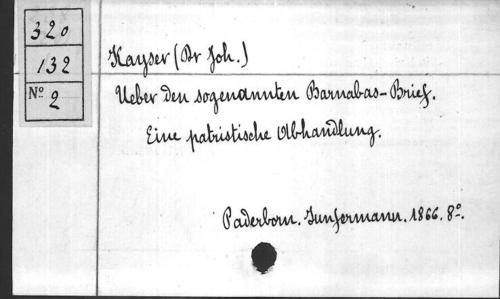 320
132
Nº 2
Kayser (Dr Joh.)
Ueber den sogenannten Barnabas-Brief.
Eine patristische Abhandlung.
Paderborn. Junfermann. 1866. 8º.